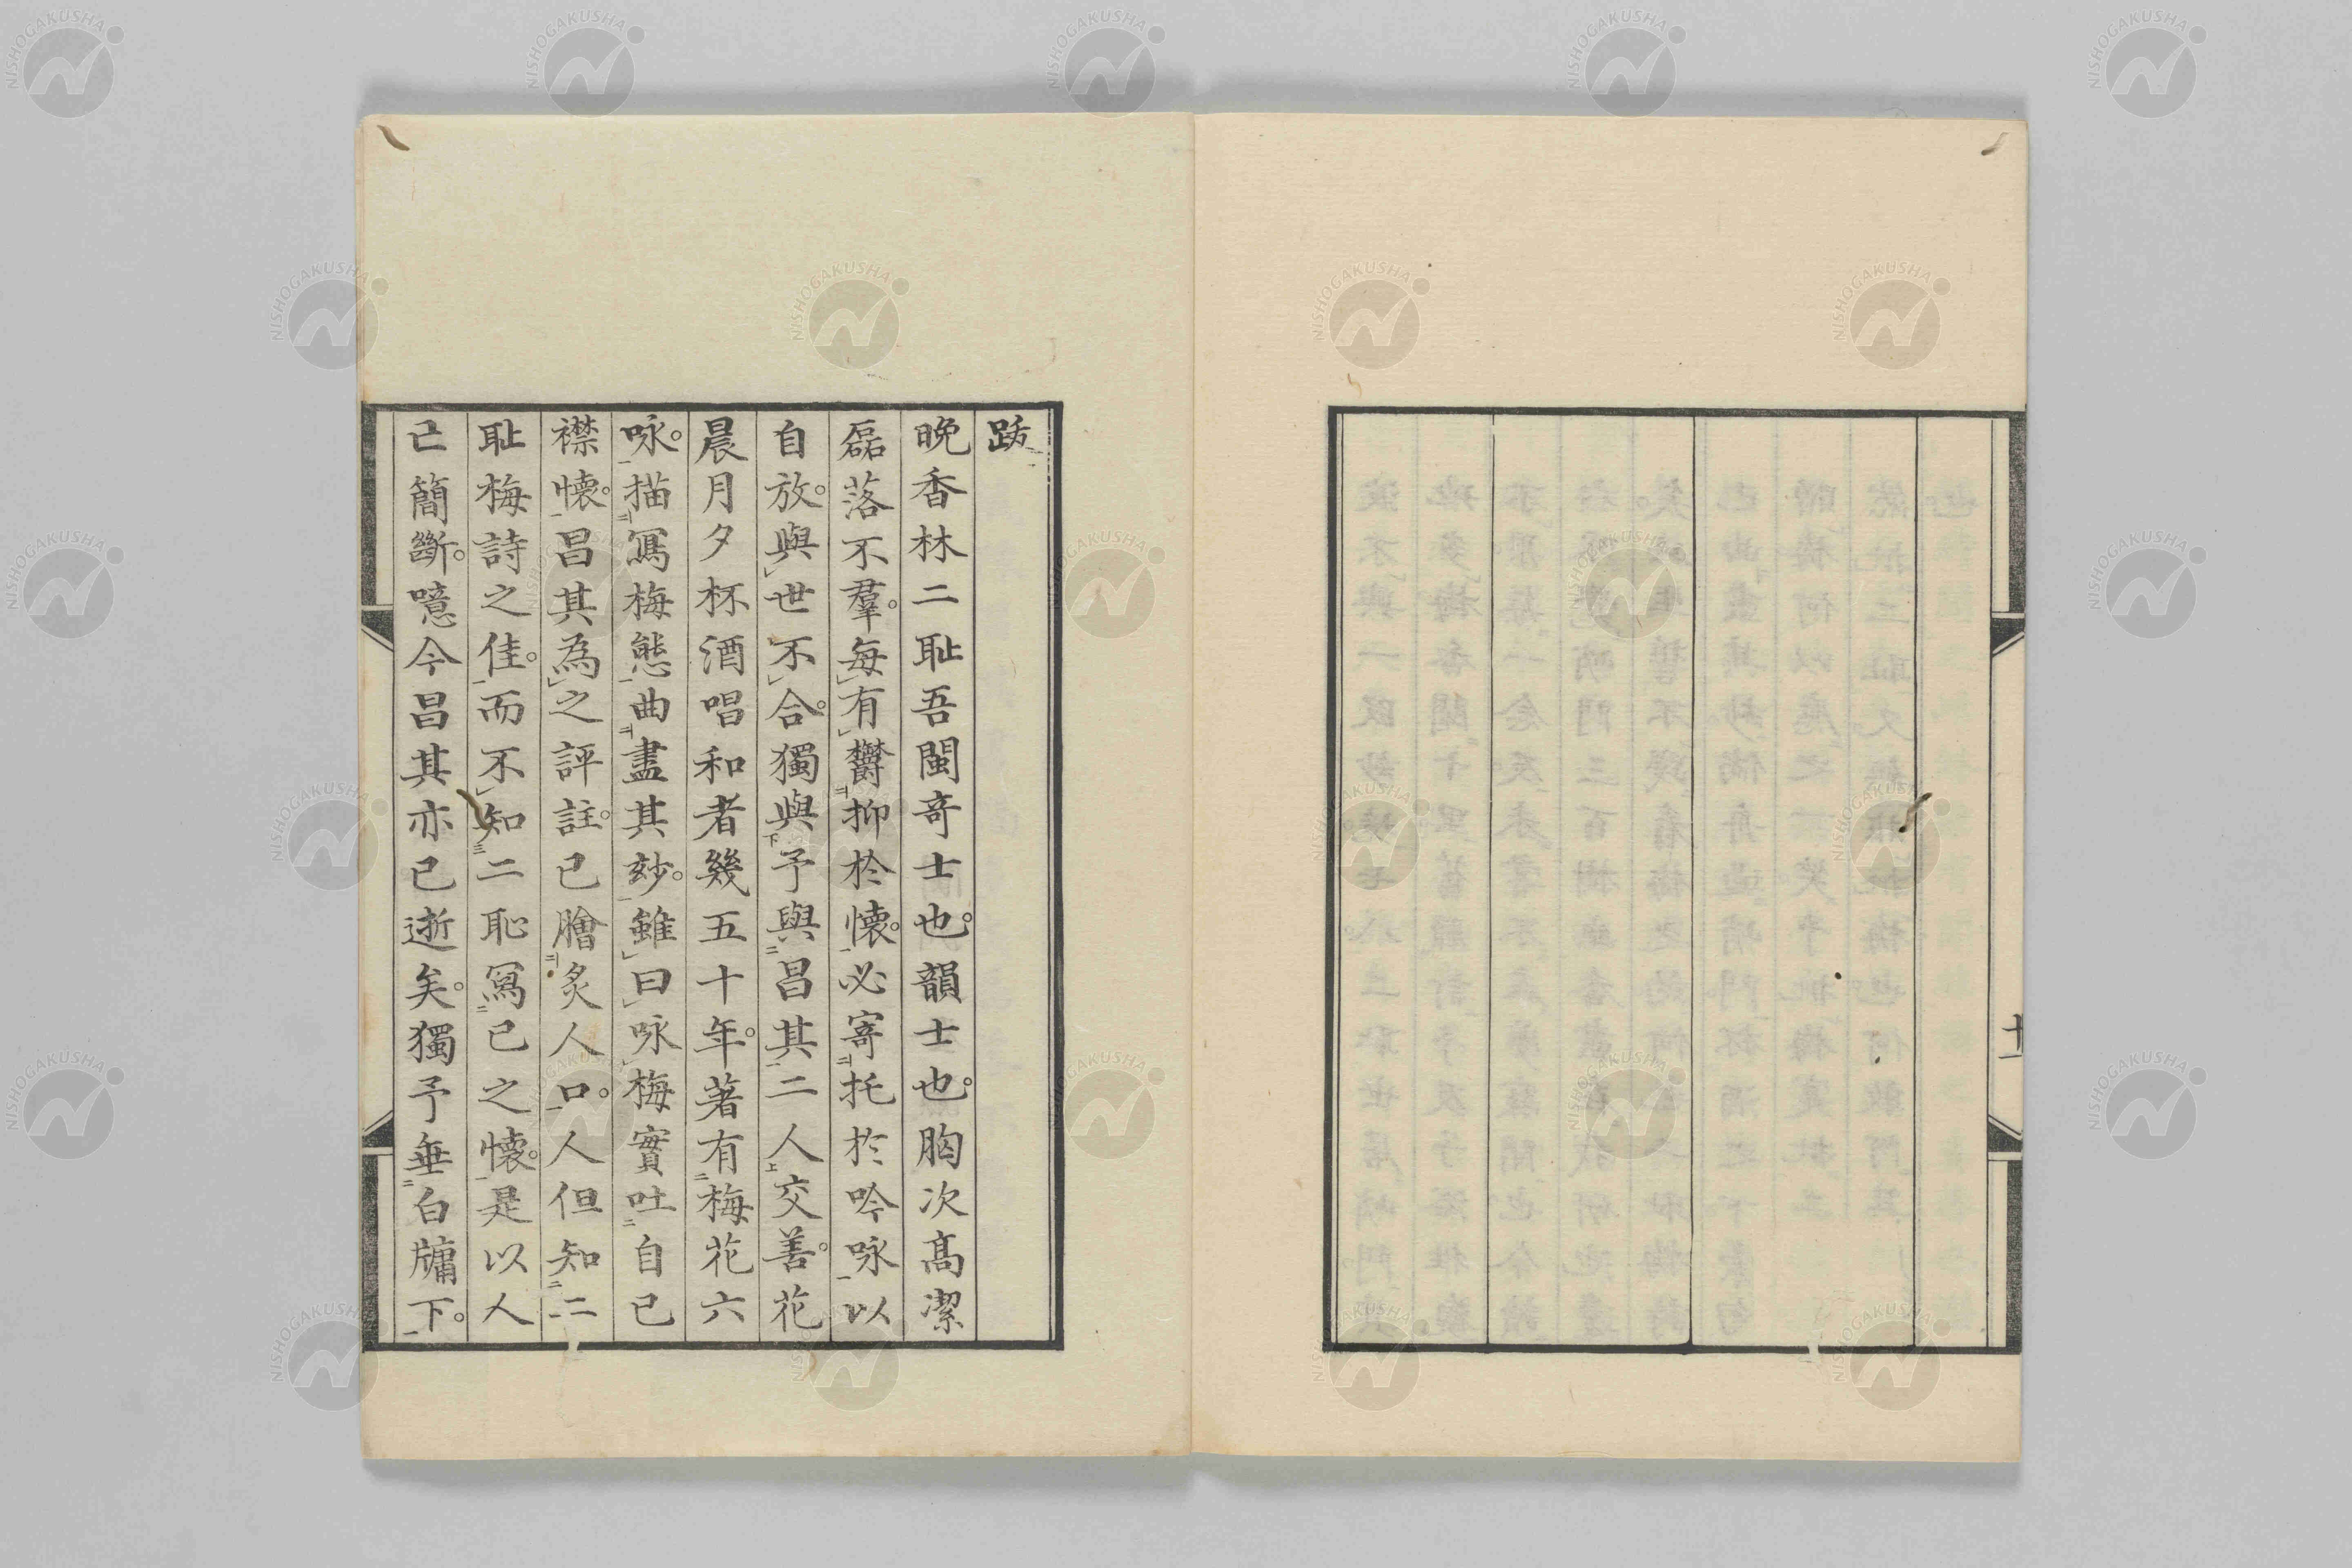 十一
跋
晩香林二耻吾閩竒士也。韻士也。胸次髙潔
磊落不羣。毎有欝抑於懷。必寄托於吟咏以
自放。與世不合。獨與予與昌其二人交善。花
晨月夕杯酒唱和者幾五十年。著有梅花六
咏。描寫梅態曲盡其玅。雖曰咏梅實吐自己
襟懷。昌其為之評註。已膾炙人口。人但知二
耻梅詩之佳。而不知二恥寫已之懷。是以人
亡簡斷。噫今昌其亦已逝矣。獨予垂白牗下。
NISHOGAKUSHA